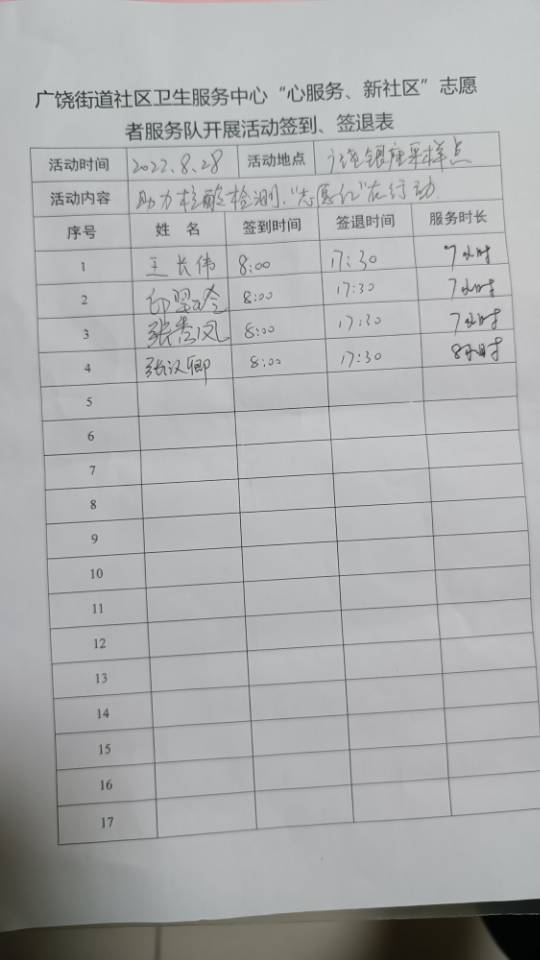 广饶街道社区卫生服务中心“心服务、新社区”志愿
者服务队开展活动签到、签退表
活动时间 2022.8.28 活动地点 广饶银座采样点
活动内容 助力核酸检测,“志愿红”在行动.
序号 姓 名 签到时间 签退时间 服务时长
1 王长伟 8:00 17:30 7小时
2 8:00 17:30 7小时
3 张秀凤 8:00 17:30 7小时
4 张汉卿 8:00 17:30 8小时
5
6
7
8
9
10
11
12
13
14
15
16
17